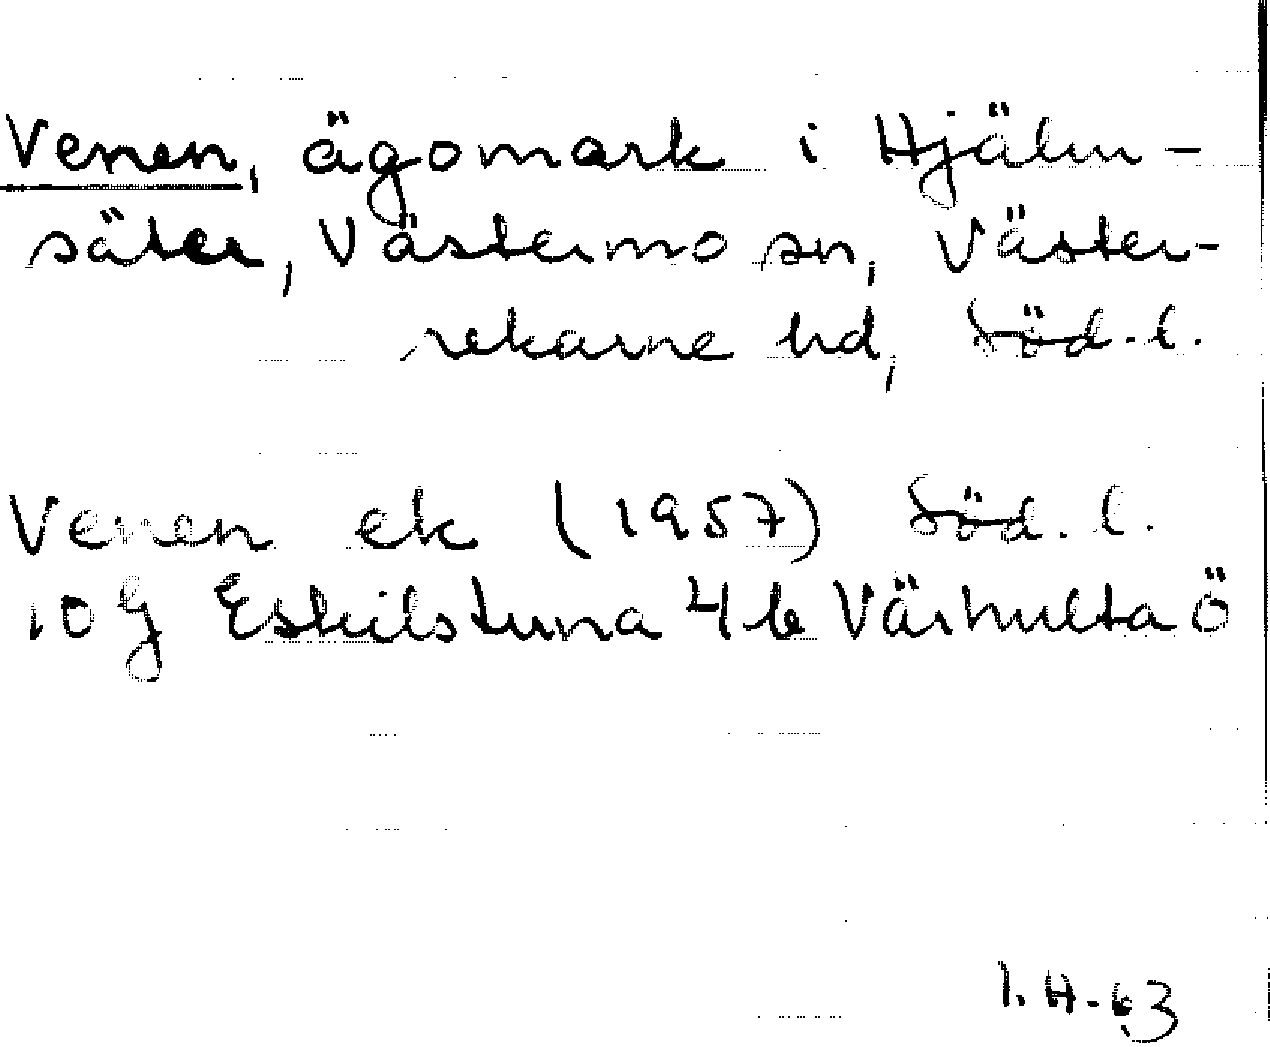 Venen, ägomark i Hjälm-
säter, Västermo sn, Väster-
rekarne hd, Söd.l.
Venen ek (1957) Söd.l.
10g Eskilstuna 4b Värhulta Ö
I.H-63